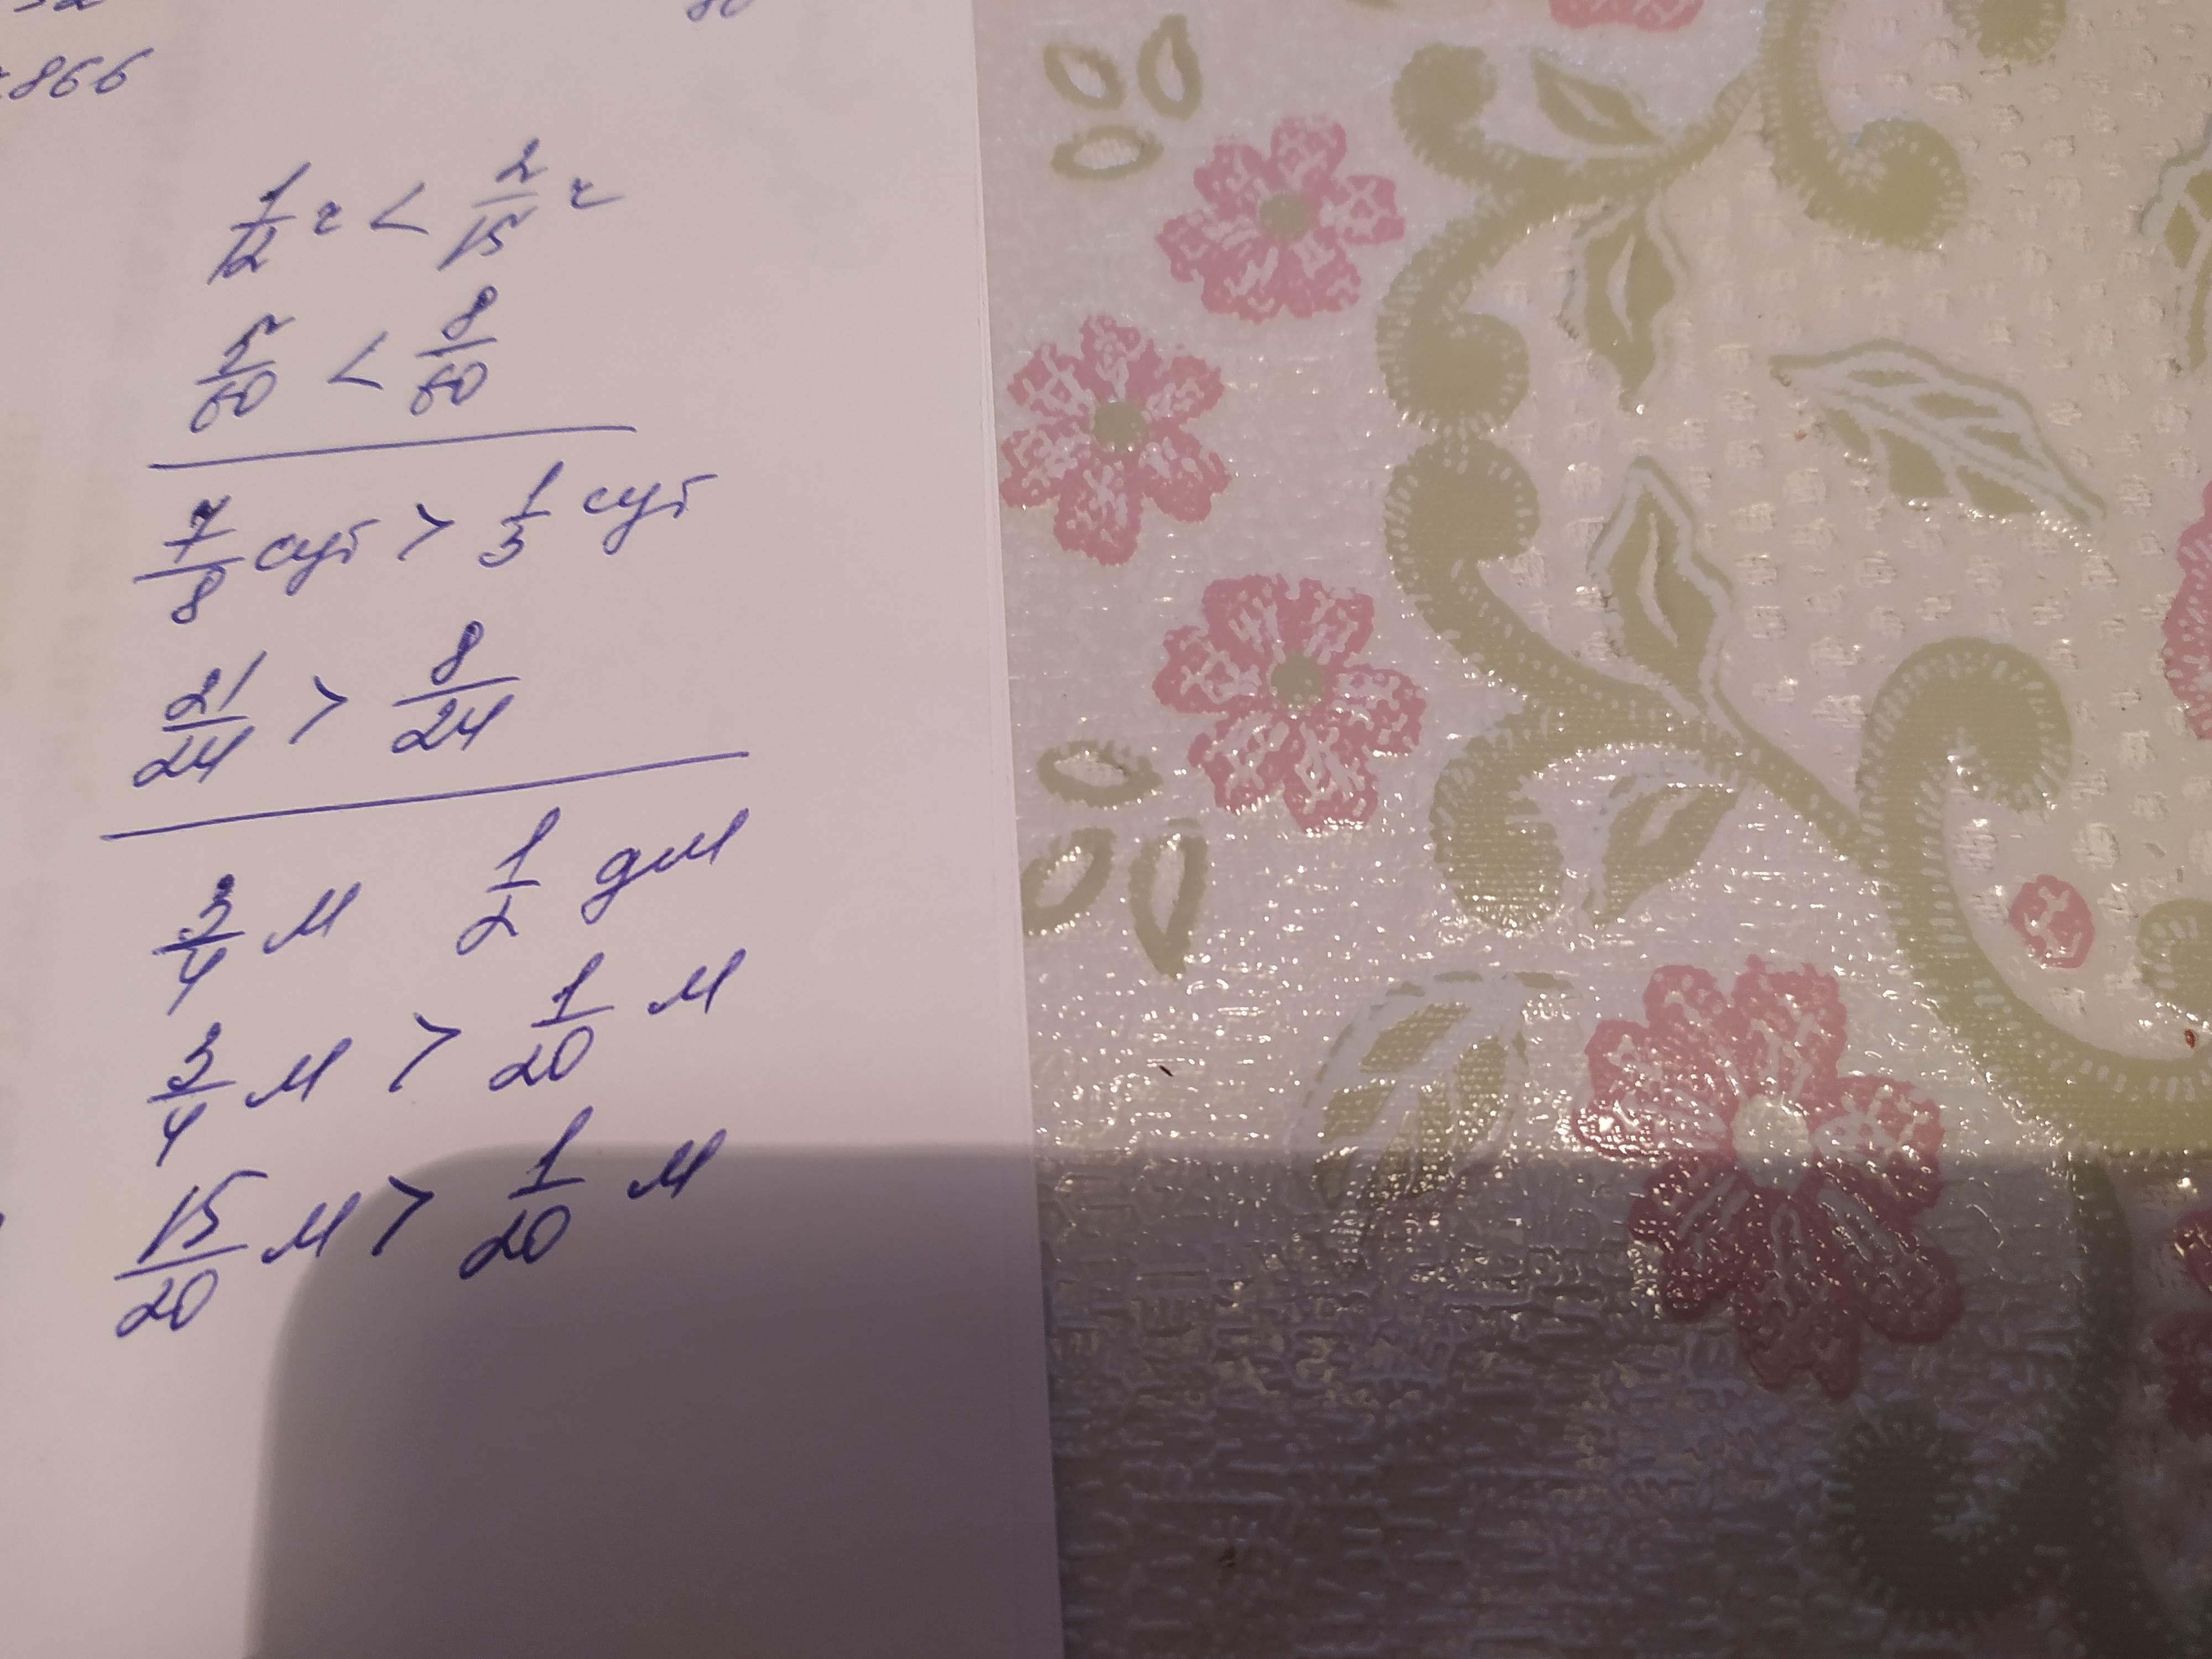 866
1/12 ч < 2/15 ч
5/60 < 8/60
7/8 сут > 1/3 сут
21/24 > 8/24
3/4 м 1/2 дм
3/4 м > 1/20 м
15/20 м > 1/20 м